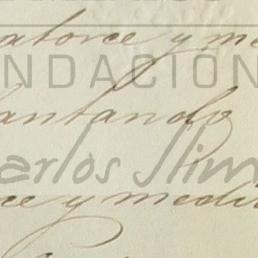 atorce y me
NDACIÓN
antando
arlos Slim
ce y medi